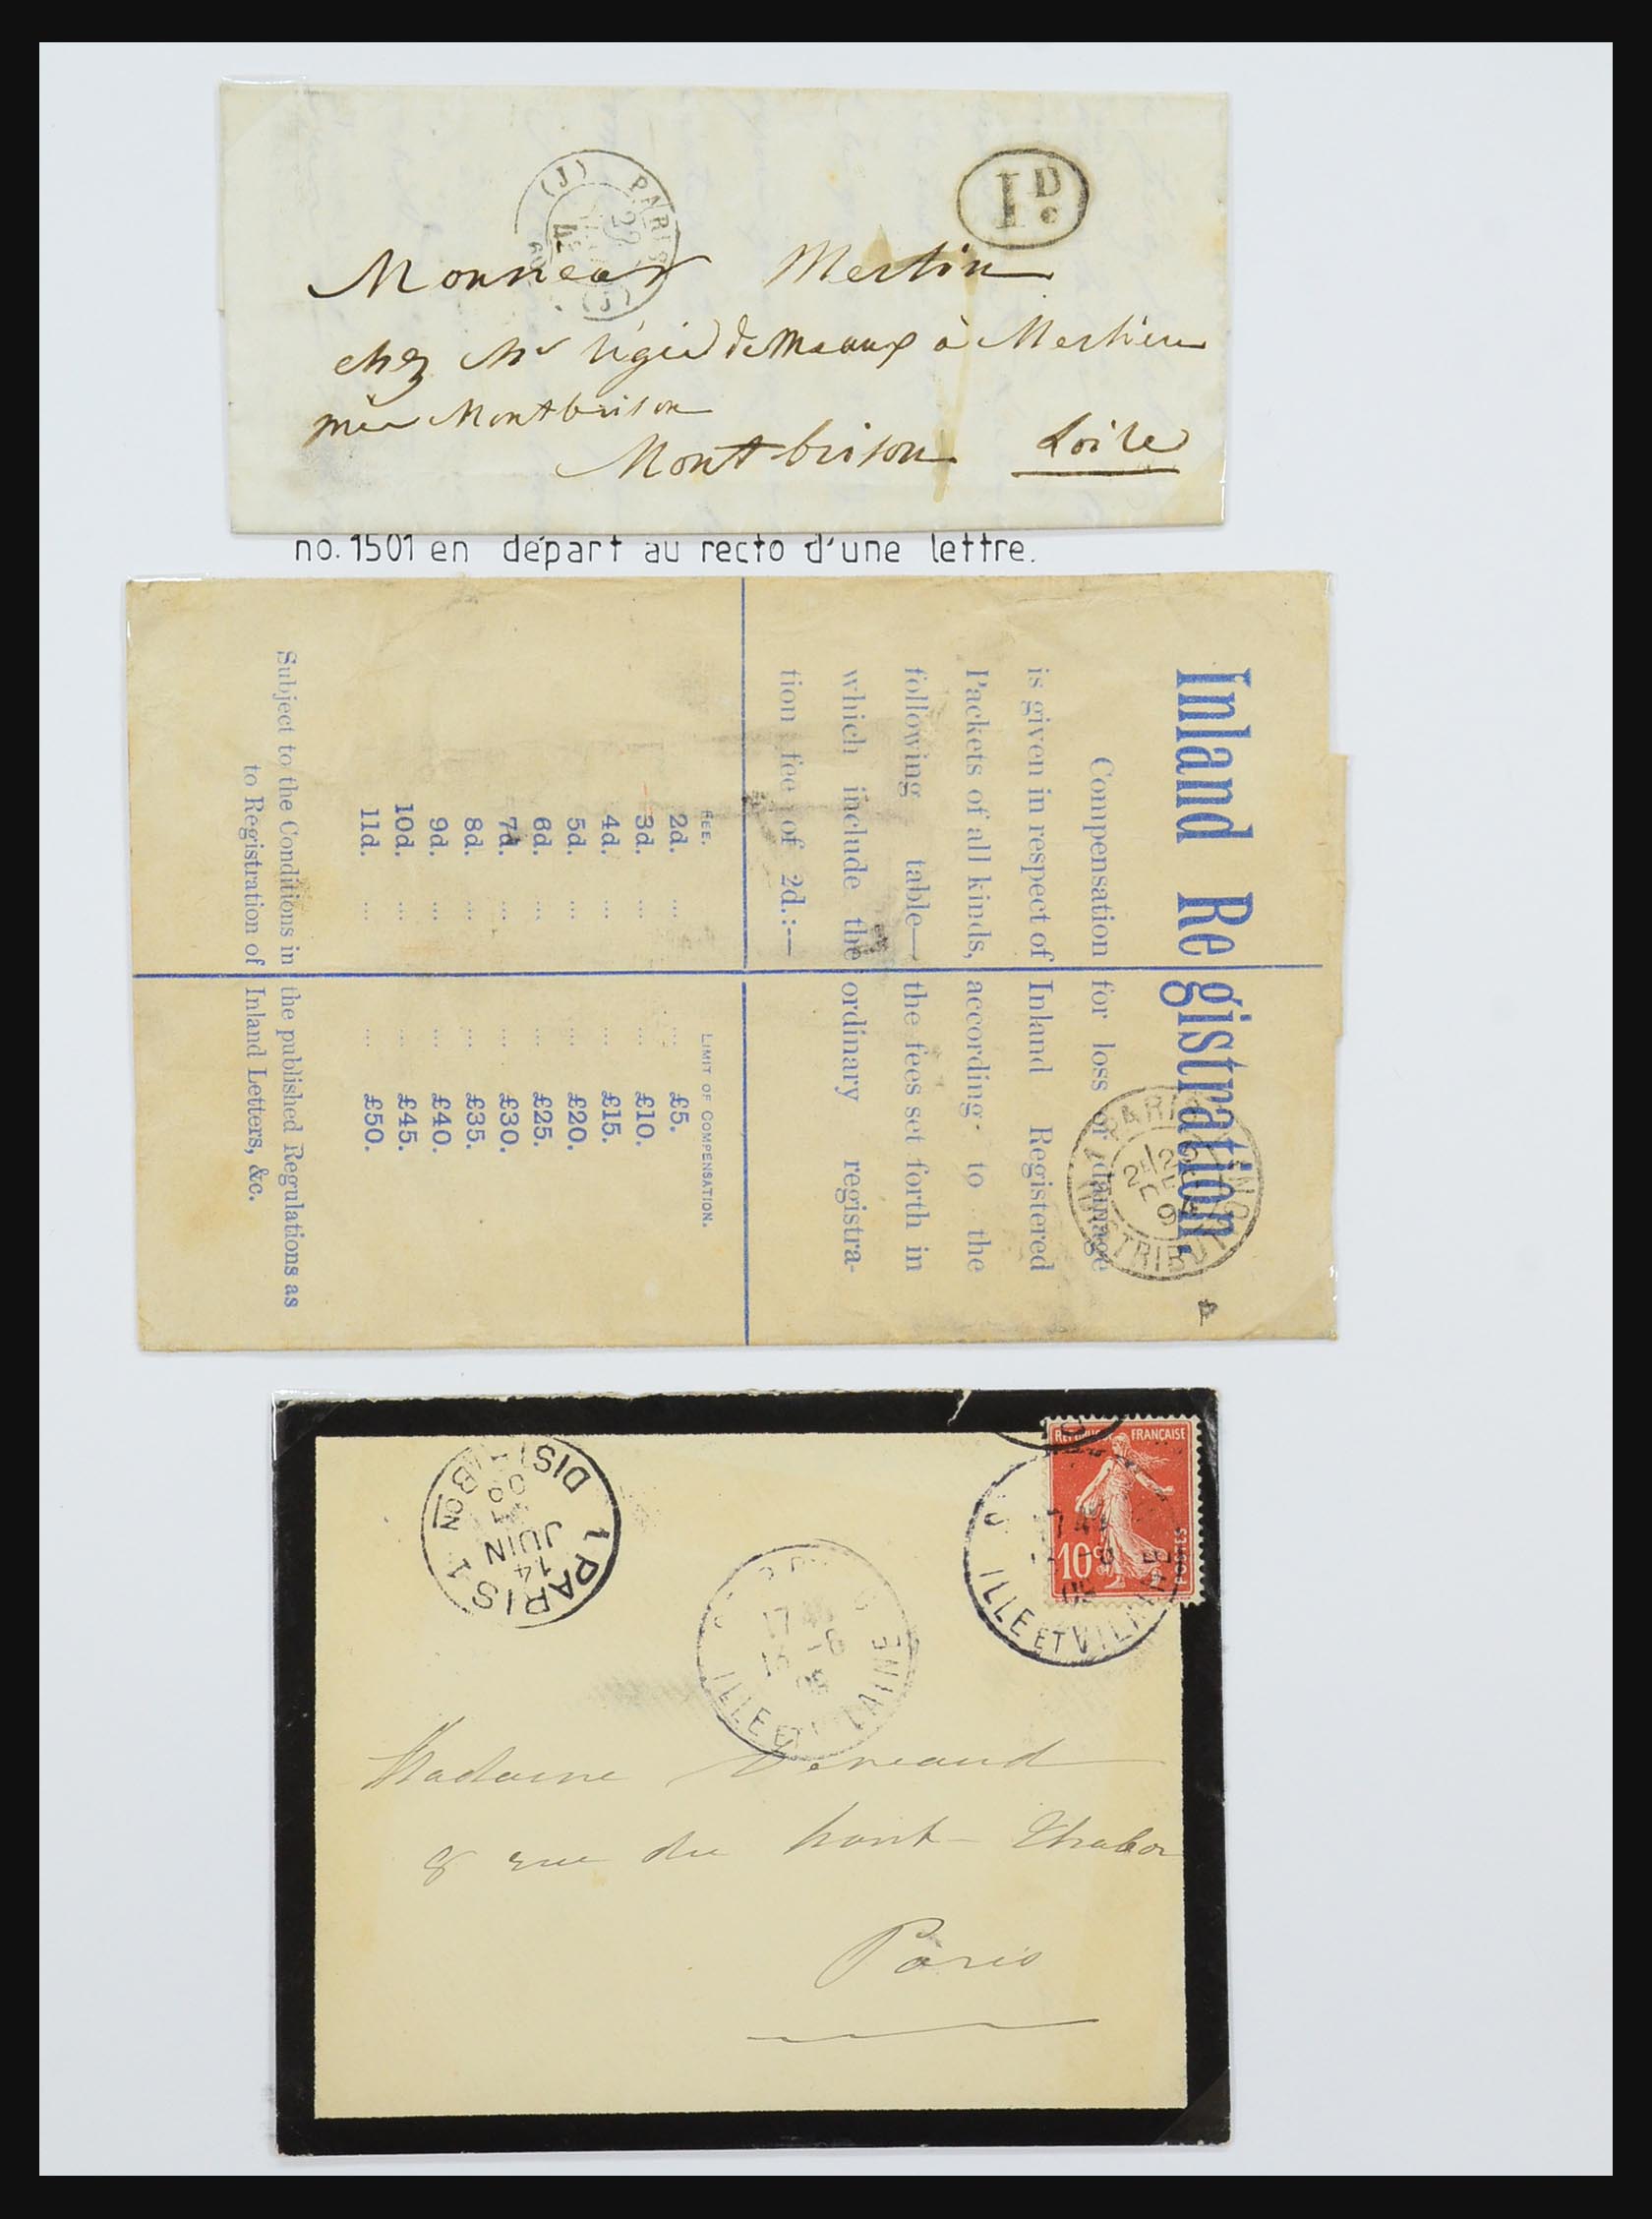 (J) PARIS (J)
22
1 D c
Monsieur Merlin
chez Mr de Meaux à
près Montbrison
Montbrison Loire
no. 1501 en départ au recto d'une lettre.
Inland Registration.
Compensation for loss or damage
is given in respect of Inland Registered
Packets of all kinds, according to the
following table— the fees set forth in
which include the ordinary registra-
tion fee of 2d.:—
FEE. LIMIT OF COMPENSATION.
2d. ... ... £5.
3d. ... ... £10.
4d. ... ... £15.
5d. ... ... £20.
6d. ... ... £25.
7d. ... ... £30.
8d. ... ... £35.
9d. ... ... £40.
10d. ... ... £45.
11d. ... ... £50.
Subject to the Conditions in the published Regulations as
to Registration of Inland Letters, &c.
PARIS
DISTRIBUTION
REPUBLIQUE FRANÇAISE
10c POSTES
ILLE ET VILAINE
1 PARIS 1
14
JUIN
DISTRIBON
ILLE ET VILAINE
Madame
8 rue du Mont-Thabor
Paris